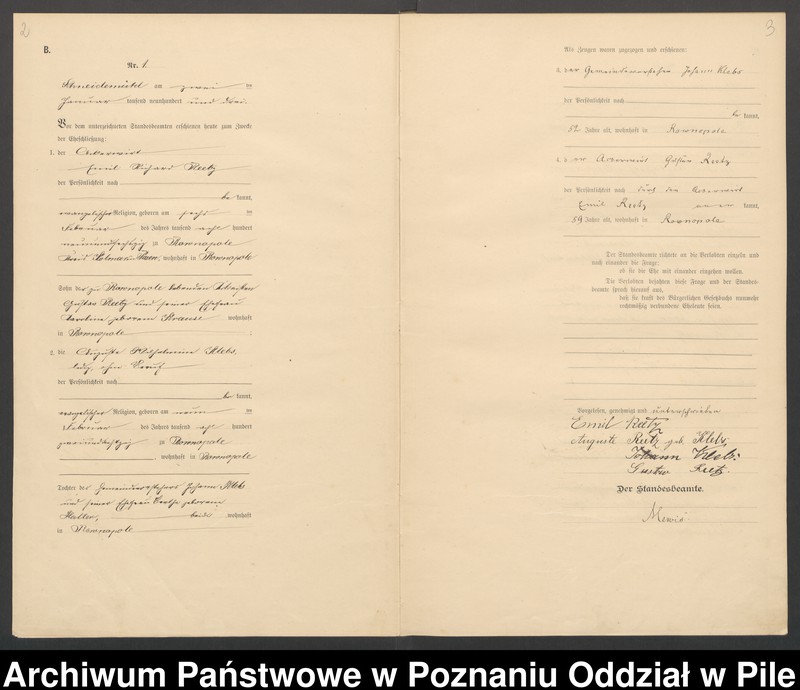 2
B.
Nr. 1.
Schneidemühl am zwei ten
Januar tausend neunhundert und drei.
Vor dem unterzeichneten Standesbeamten erschienen heute zum Zwecke
der Eheschließung:
1. der Ackerwirt
Emil Richard Reetz
der Persönlichkeit nach
be kannt,
evangelischer Religion, geboren am sechs ten
Februar des Jahres tausend acht hundert
zu Rownopole
Kreis Kolmar i. Posen, wohnhaft in Rownopole
Sohn der zu Rownopole lebenden
Gustav Reetz und seiner Ehefrau
Karoline geborenen Krause wohnhaft
in Rownopole
2. die Auguste Wilhelmine Klebs,
ledig, ohne Beruf
der Persönlichkeit nach
be kannt,
evangelischer Religion, geboren am neun ten
Februar des Jahres tausend acht hundert
zweiundachtzig zu Rownopole
, wohnhaft in Rownopole
Tochter des Gemeindevorstehers Johann Klebs
und seiner Ehefrau geborenen
beide wohnhaft
in Rownopole
3
Als Zeugen waren zugezogen und erschienen:
3. der Gemeindevorsteher Johann Klebs
der Persönlichkeit nach
be kannt,
52 Jahre alt, wohnhaft in Rownopole
4. der Ackerwirt Gustav Reetz
der Persönlichkeit nach durch den Ackerwirt
Emil Reetz anerkannt,
59 Jahre alt, wohnhaft in Rownopole
Der Standesbeamte richtete an die Verlobten einzeln und
nach einander die Frage:
ob sie die Ehe mit einander eingehen wollen.
Die Verlobten bejahten diese Frage und der Standes-
beamte sprach hierauf aus,
daß sie kraft des Bürgerlichen Gesetzbuchs nunmehr
rechtmäßig verbundene Eheleute seien.
Vorgelesen, genehmigt und unterschrieben
Emil Reetz
Auguste Reetz geb. Klebs,
Johann Klebs.
Gustav Reetz.
Der Standesbeamte.
Mewis
Archiwum Państwowe w Poznaniu Oddział w Pile